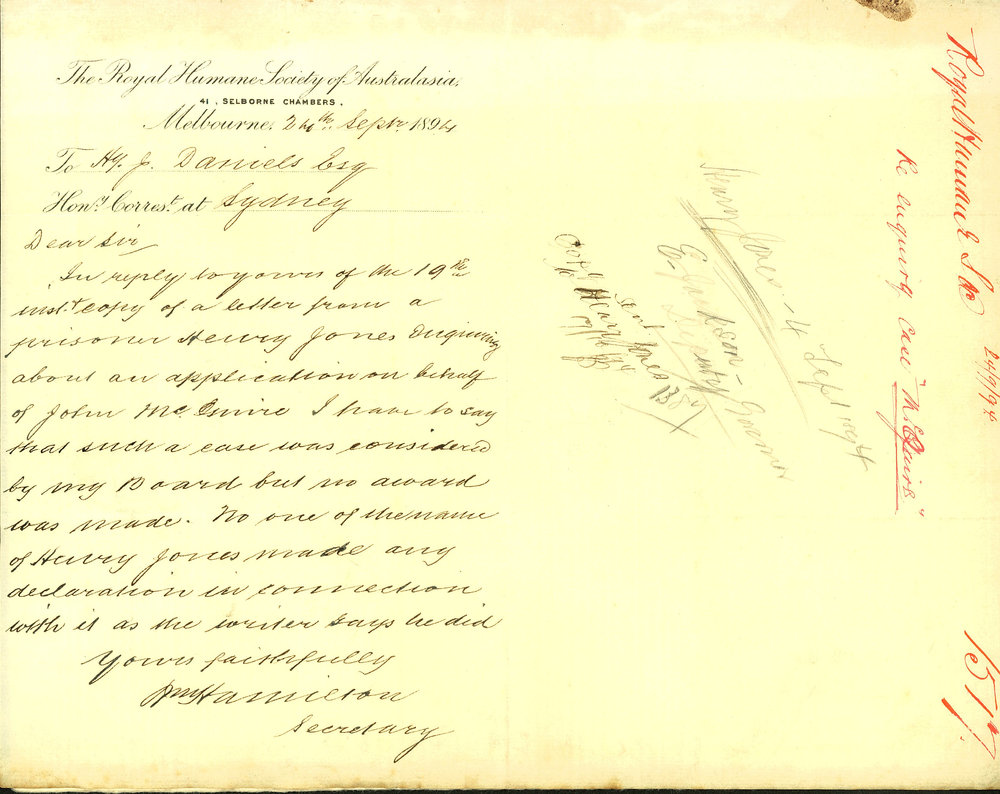 The Royal Humane Society of Australasia,
41, SELBORNE CHAMBERS.
Melbourne, 24th Septr. 1894
To Hy. J. Daniels Esq
Hony. Correst. at Sydney
Dear Sir
In reply to yours of the 19th
inst. copy of a letter from a
prisoner Henry Jones Enquiring
about an application on behalf
of John McGuire I have to say
that such a case was considered
by my Board but no award
was made. No one of the name
of Henry Jones made any
declaration in connection
with it as the writer says he did
Yours faithfully
Wm Hamilton
Secretary
Copy sent
to Henry Jones
Henry Jones - 4 Sept 1894
Deputy Governor
Royal Humane Soc
24/9/94
Re enquiry Case "McGuire"
1517